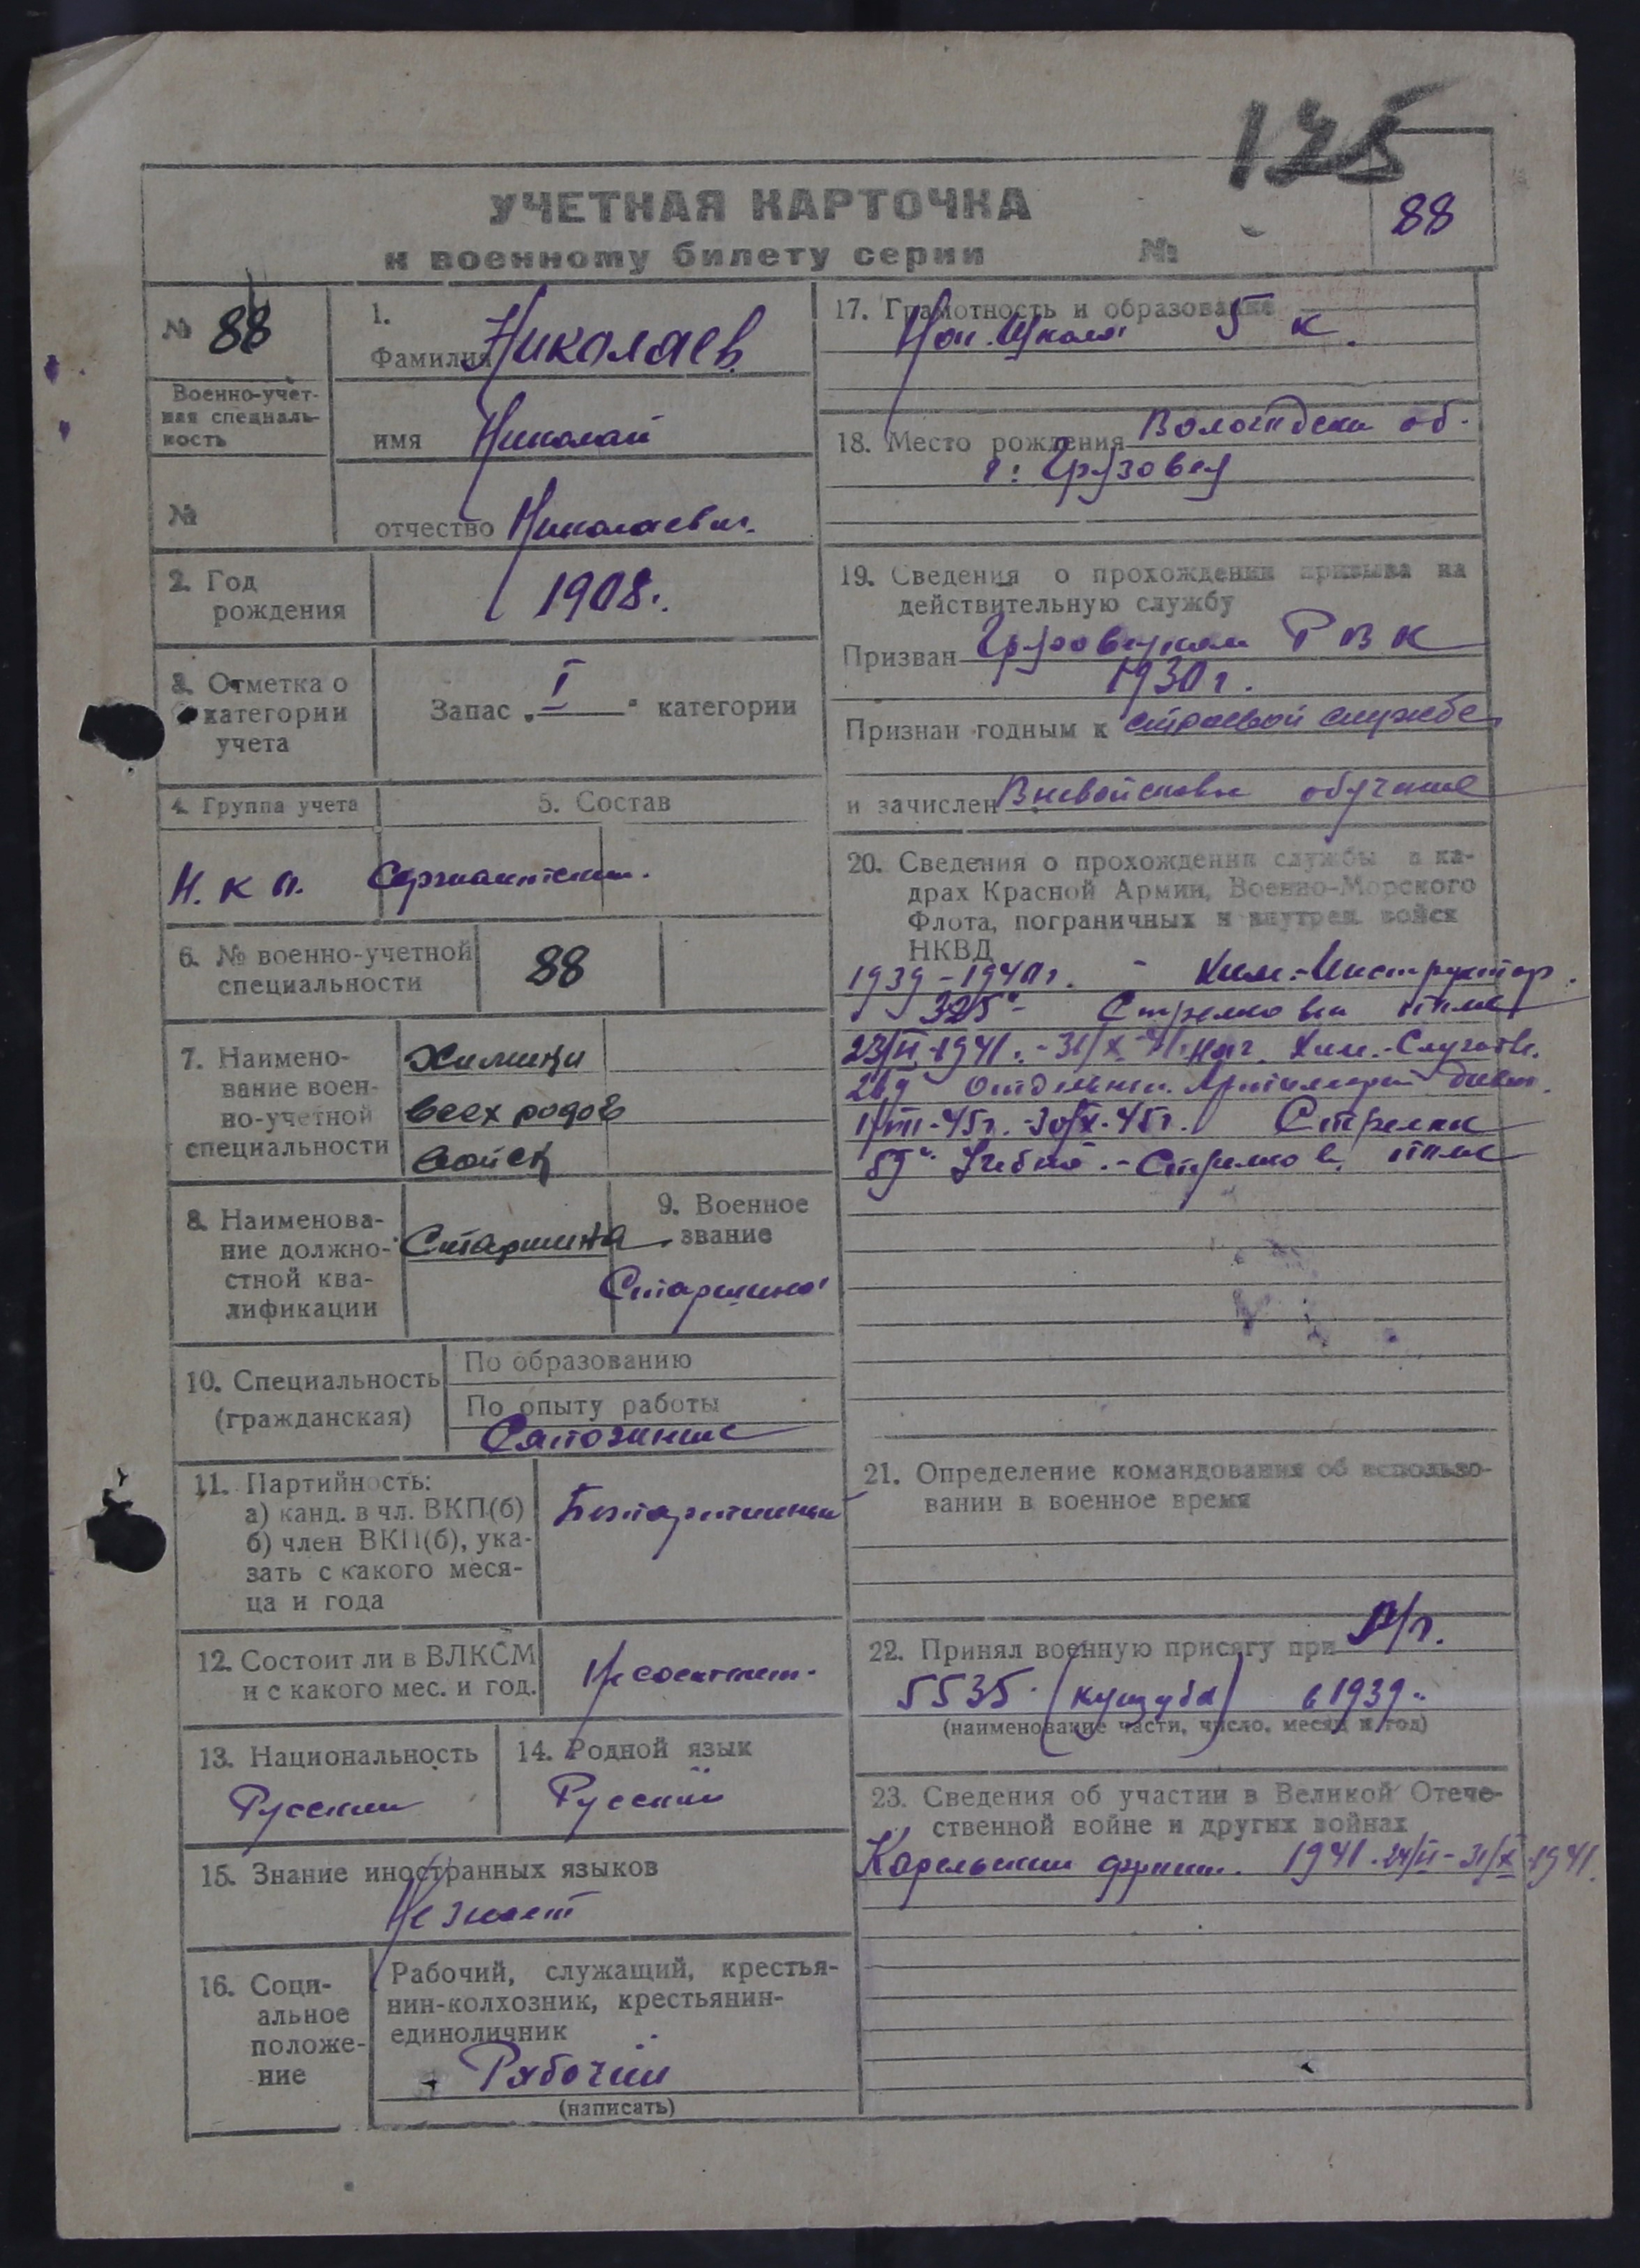 125
УЧЕТНАЯ КАРТОЧКА
к военному билету серии №
88
№ 88
Военно-учет-
ная специаль-
ность
№
1.
Фамилия Николаев
имя Николай
отчество Николаевич.
2. Год
рождения
1908.
3. Отметка о
категории
учета
Запас „I“ категории
4. Группа учета
5. Состав
Н. К О.
Сержантский.
6. № военно-учетной
специальности
88
7. Наимено-
вание воен-
но-учетной
специальности
Химики
всех родов
войск
8. Наименова-
ние должно-
стной ква-
лификации
Старшина
9. Военное
звание
Старшина
10. Специальность
(гражданская)
По образованию
По опыту работы
Сапожник
11. Партийность:
а) канд. в чл. ВКП(б)
б) член ВКП(б), ука-
зать с какого меся-
ца и года
Беспартийный
12. Состоит ли в ВЛКСМ
и с какого мес. и год.
Не состоит.
13. Национальность
Русский
14. Родной язык
Русский
15. Знание иностранных языков
Не знает
16. Соци-
альное
положе-
ние
Рабочий, служащий, крестья-
нин-колхозник, крестьянин-
единоличник
Рабочий
(написать)
17. Грамотность и образование
Школа 5 к.
18. Место рождения Вологодская об.
г. Грязовец
19. Сведения о прохождении призыва на
действительную службу
Призван Грязовецким РВК
1930 г.
Признан годным к строевой службе
и зачислен Вневойсковое обучение
20. Сведения о прохождении службы в ка-
драх Красной Армии, Военно-Морского
Флота, пограничных и внутрен. войск
НКВД
1939 - 1940 г. - Хим-Инструктор.
325 Стрелковый полк
23/VI-1941. - 31/X-41. нач. Хим.-Службы.
Отдельный Артиллерий дивиз.
1/VIII-45 г. - 30/X-45 г. Стрелок
Учебно-Стрелков. полк
21. Определение командования об использо-
вании в военное время
22. Принял военную присягу при п/п.
5535 в 1939
(наименование части, число, месяц и год)
23. Сведения об участии в Великой Отече-
ственной войне и других войнах
Карельский фронт. 1941. 24/VI - 31/X 1941.